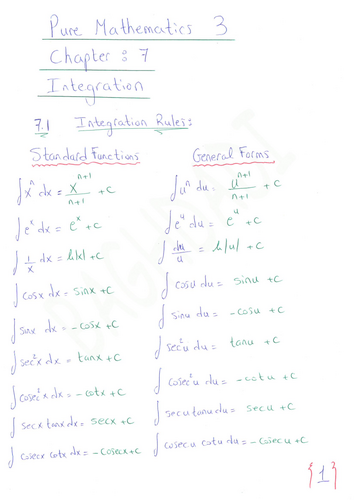 Pure Mathematics 3
Chapter : 7
Integration
7.1 Integration Rules:
Standard Functions
∫xⁿ dx = xⁿ⁺¹/n+1 + c
∫eˣ dx = eˣ + c
∫1/x dx = ln|x| + c
∫cosx dx = sinx + c
∫sinx dx = -cosx + c
∫sec²x dx = tanx + c
∫cosec²x dx = -cotx + c
∫secx tanx dx = secx + c
∫cosecx cotx dx = -cosecx + c
General Forms
∫uⁿ du = uⁿ⁺¹/n+1 + c
∫eᵘ du = eᵘ + c
∫du/u = ln|u| + c
∫cosu du = sinu + c
∫sinu du = -cosu + c
∫sec²u du = tanu + c
∫cosec²u du = -cotu + c
∫secu tanu du = secu + c
∫cosecu cotu du = -cosecu + c
{1}